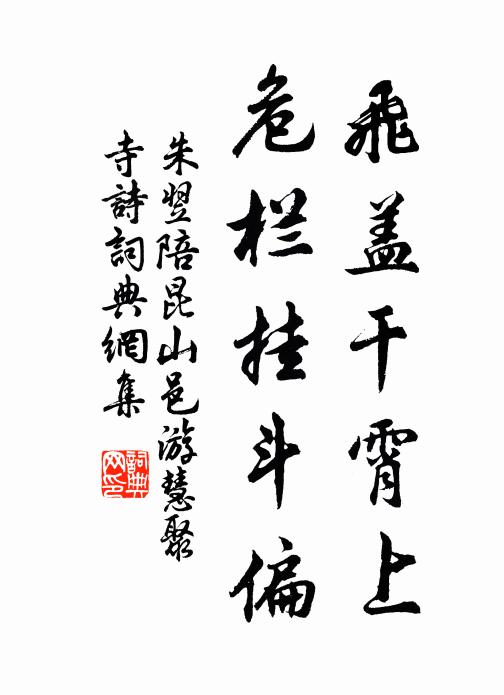 飛盖干霄上
危栏挂斗偏
朱翌陪昆山邑游慧聚
寺詩詞典網集
詞典
网印